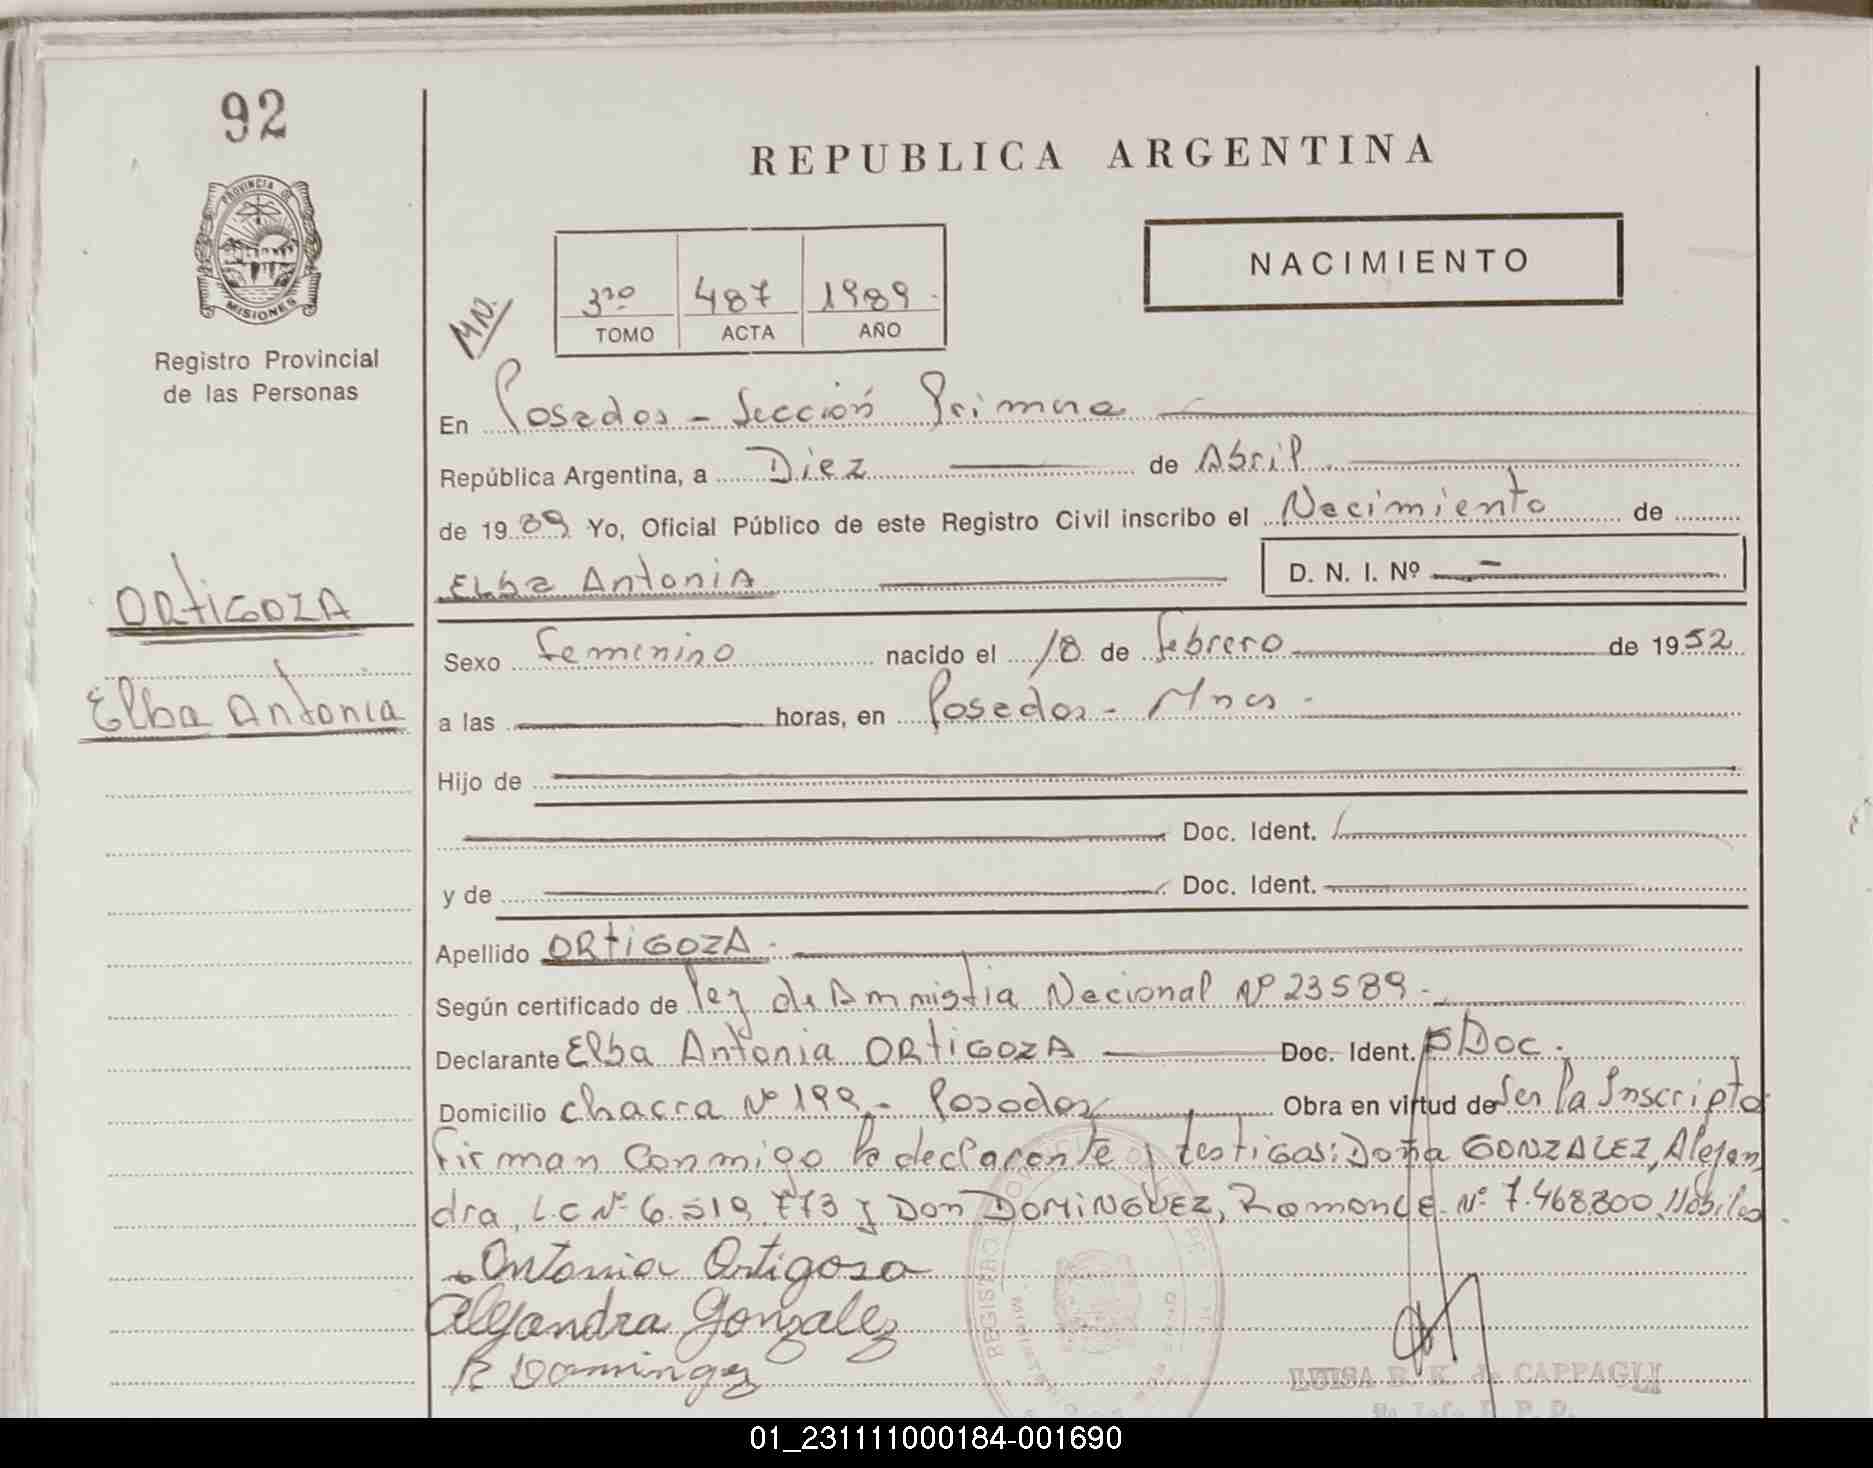 92
REPUBLICA ARGENTINA
PROVINCIA DE
MISIONES
Registro Provincial
de las Personas
NACIMIENTO
MN.
3ro 487 1989
TOMO ACTA AÑO
En Posadas - Sección Primera
República Argentina, a Diez de Abril
de 1989 Yo, Oficial Público de este Registro Civil inscribo el Nacimiento de
Elba Antonia D. N. I. Nº -
ORTIGOZA
Elba Antonia
Sexo femenino nacido el 18 de febrero de 1952
a las horas, en Posadas - Mnes -
Hijo de
Doc. Ident.
y de Doc. Ident.
Apellido ORTIGOZA.
Según certificado de ley de Ammistia Nacional Nº 23589.-
Declarante Elba Antonia ORTIGOZA Doc. Ident. Doc.
Domicilio chacra Nº 199.- Posadas Obra en virtud de Ser la Inscripta
firman conmigo la declarante y testigos: Doña GONZALEZ, Alejan
dra, L.C Nº 6.519.773 y Don DOMINGUEZ, Ramon L.E. Nº 7.468.800. Hábiles
Antonia Ortigoza
Alejandra Gonzalez
R Dominguez
LUISA E. K. de CAPPAGLI
01_231111000184-001690